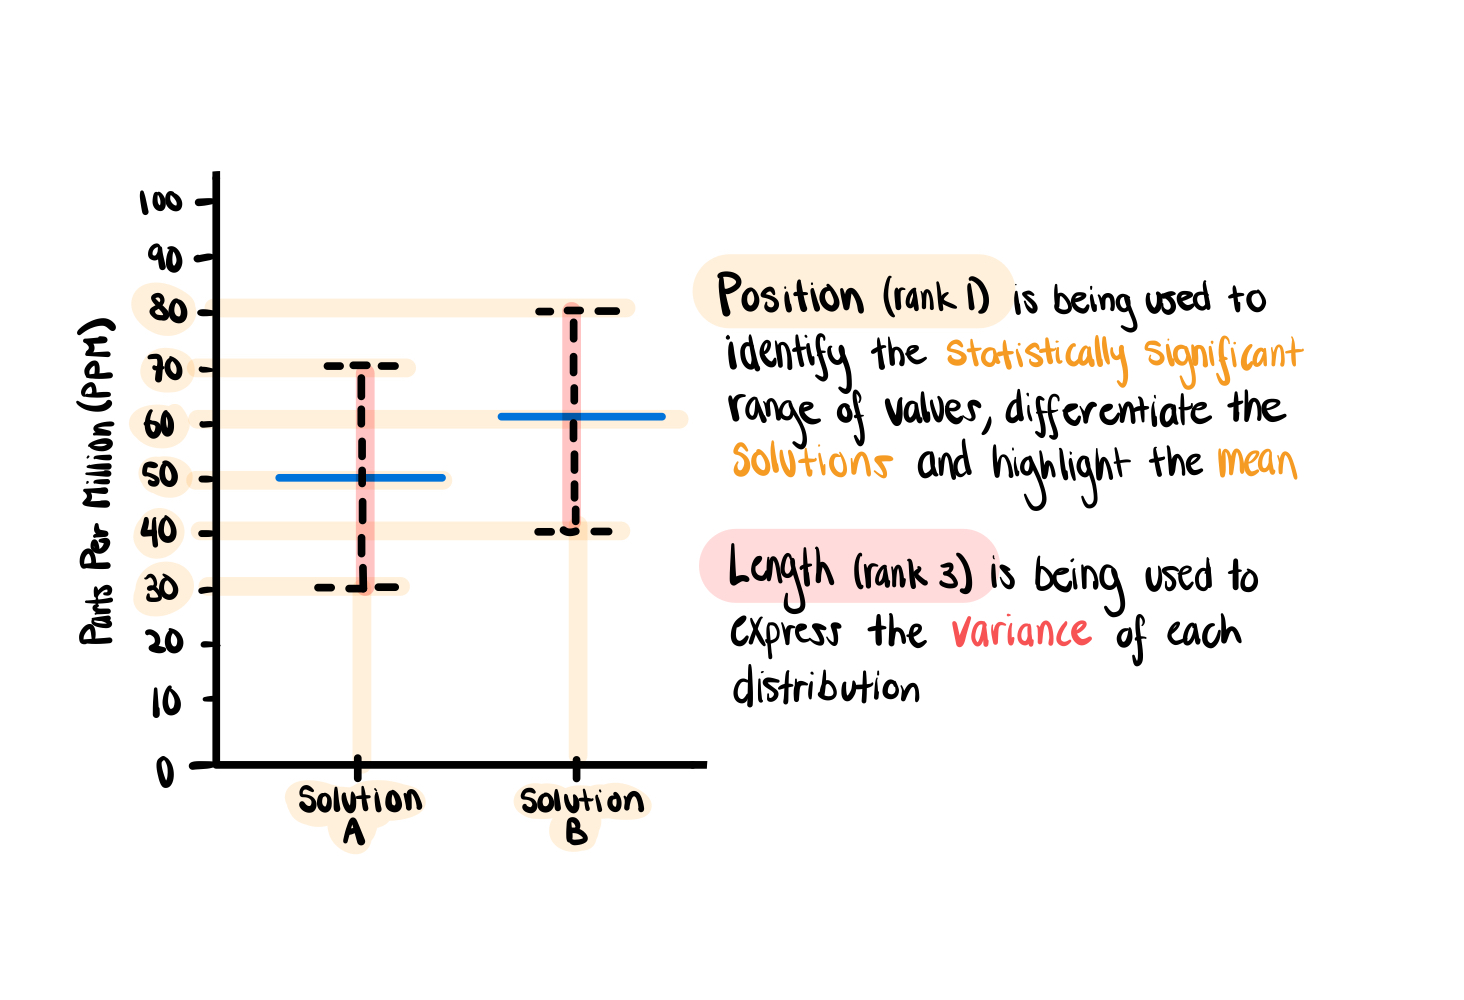 Parts Per Million (PPM)
100
90
80
70
60
50
40
30
20
10
0
Solution
A
Solution
B
Position (rank 1) is being used to
identify the statistically significant
range of values, differentiate the
solutions and highlight the mean
Length (rank 3) is being used to
express the variance of each
distribution